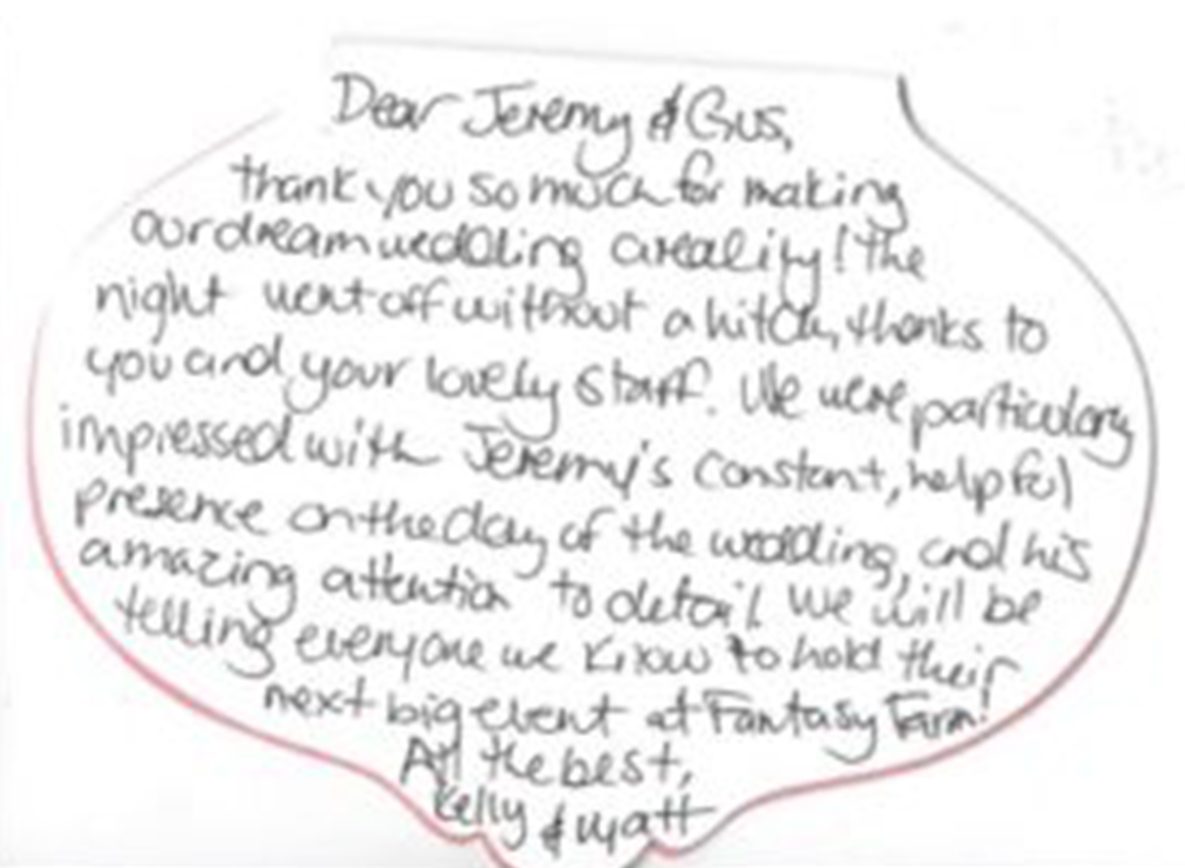 Dear Jeremy & Gus,
thank you so much for making
our dream wedding a reality! The
night went off without a hitch, thanks to
you and your lovely staff. We were particulary
impressed with Jeremy's constant, helpful
presence on the day of the wedding, and his
amazing attention to detail. We will be
telling everyone we know to hold their
next big event at Fantasy Farm!
All the best,
Kelly & Matt